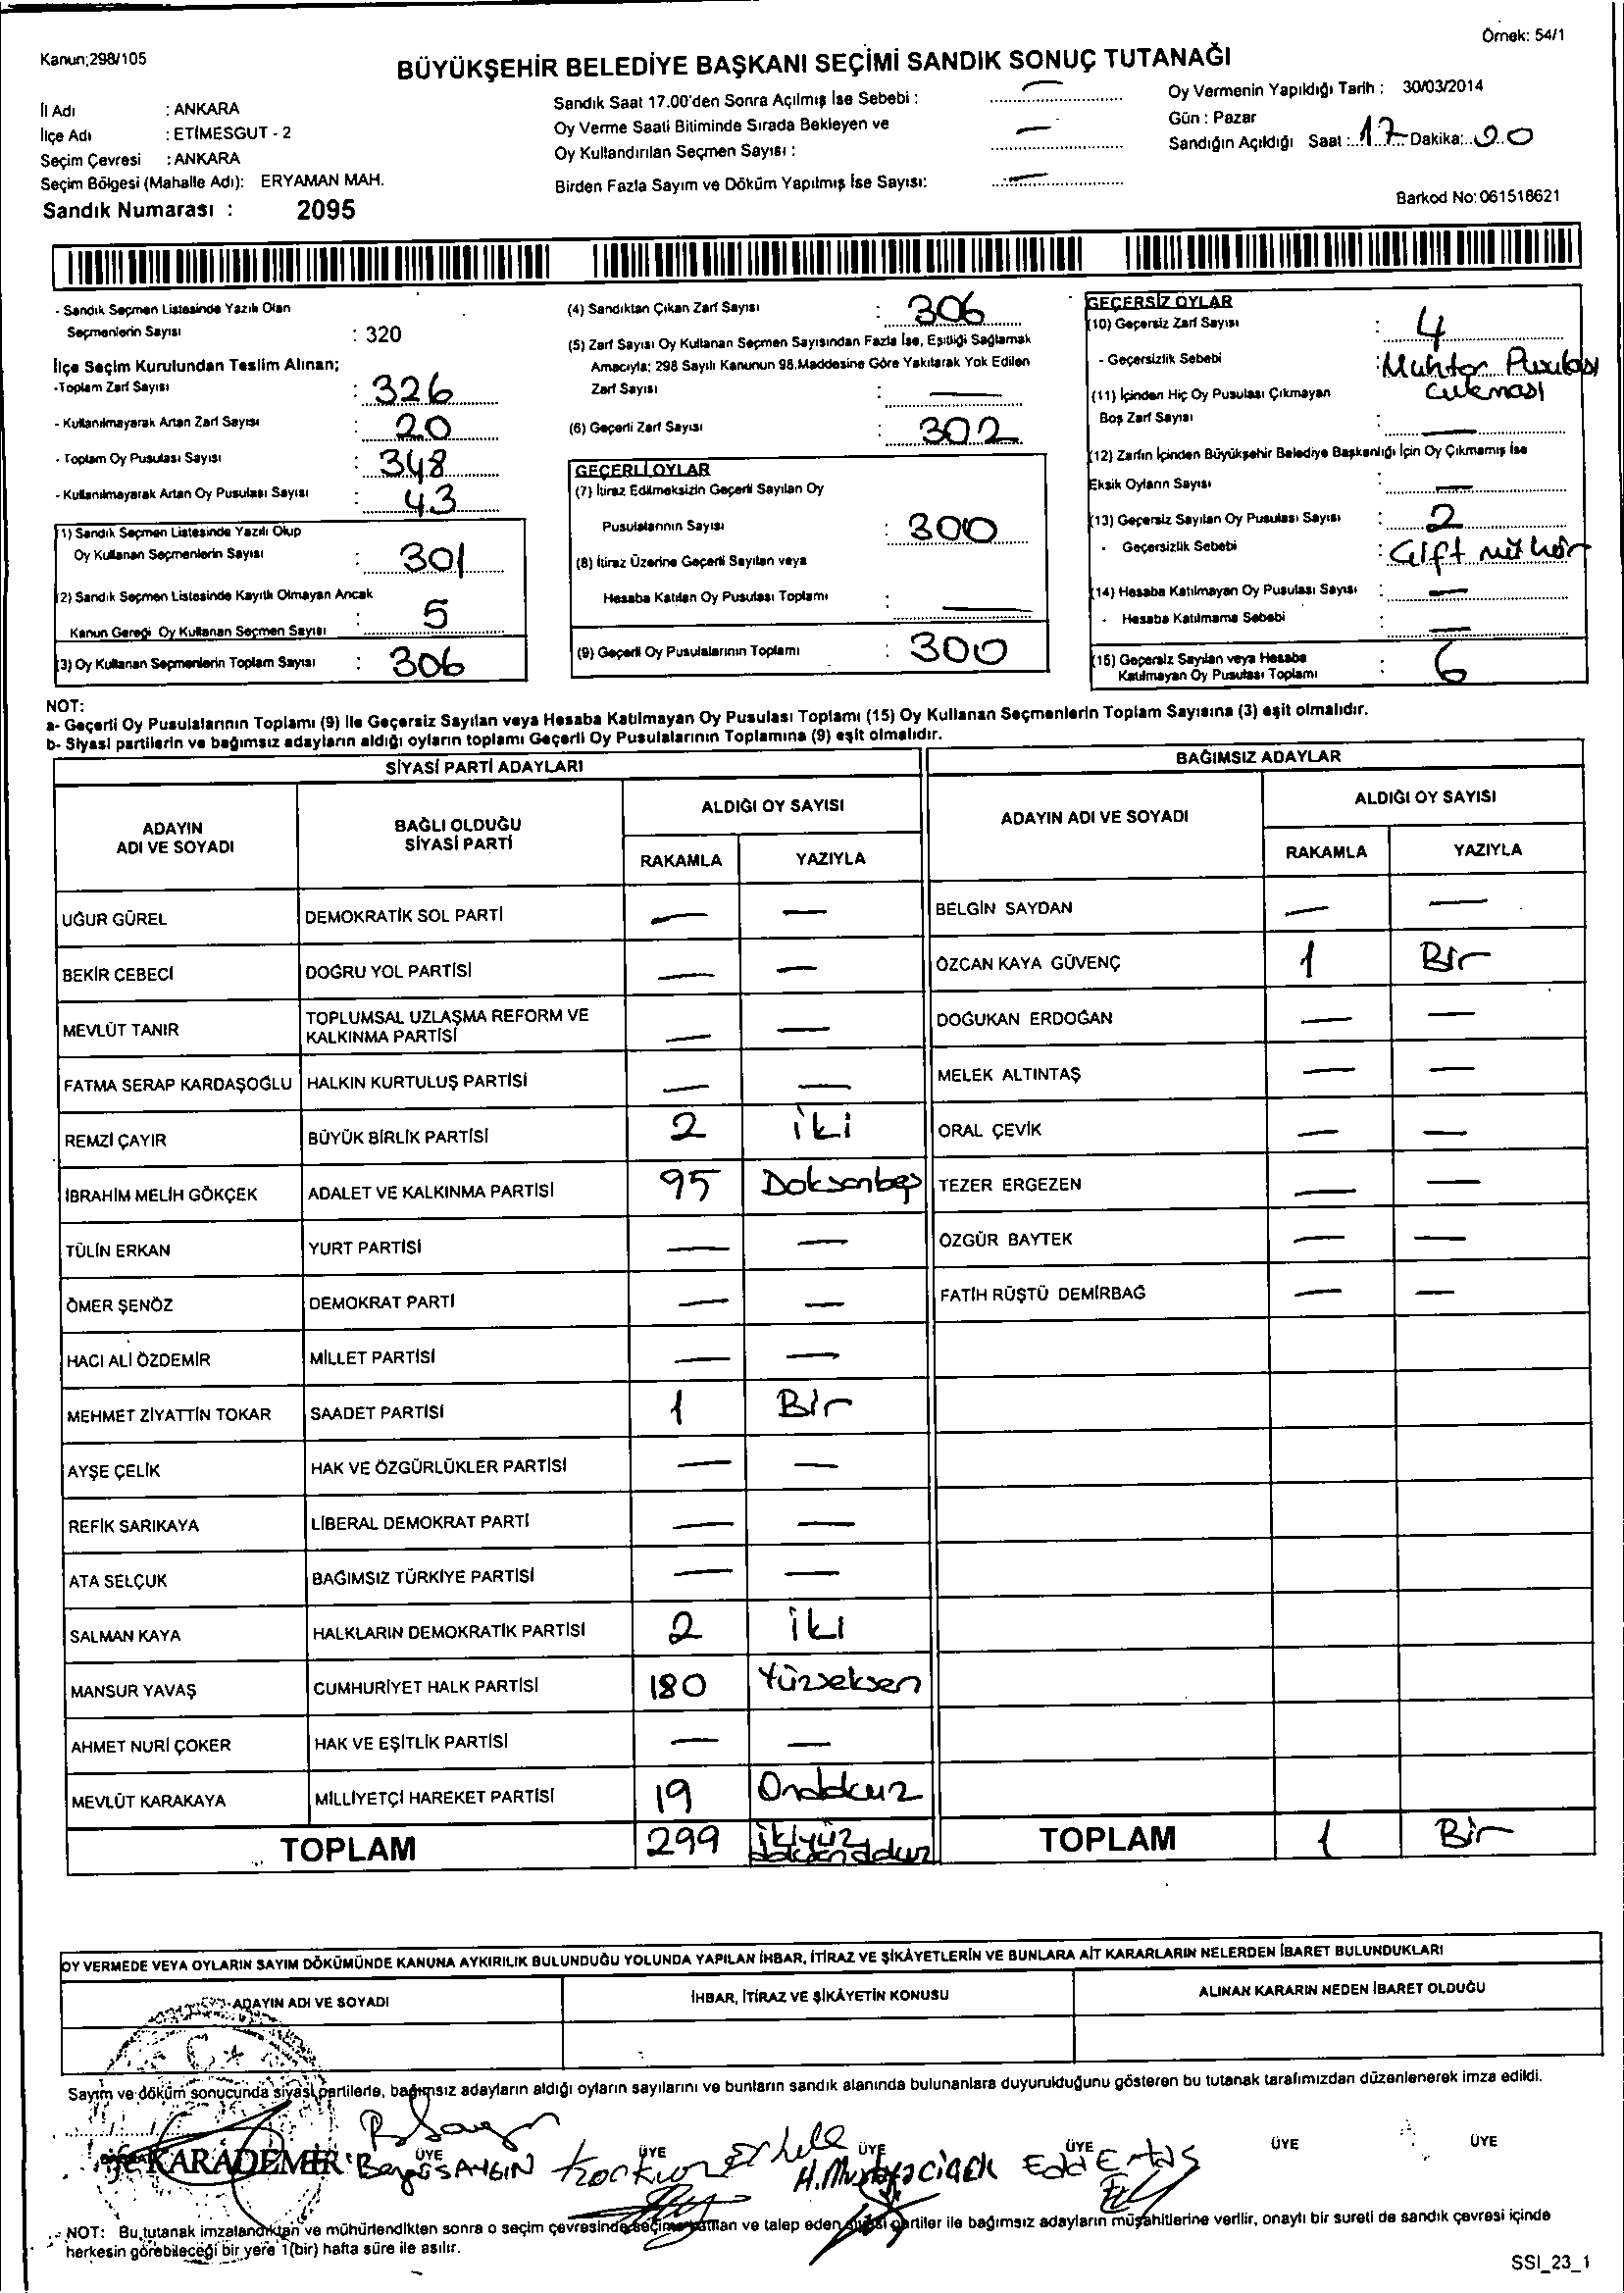 Örnek: 54/1
Kanun;298/105
BÜYÜKŞEHİR BELEDİYE BAŞKANI SEÇİMİ SANDIK SONUÇ TUTANAĞI
İl Adı : ANKARA
İlçe Adı : ETİMESGUT - 2
Seçim Çevresi : ANKARA
Seçim Bölgesi (Mahalle Adı): ERYAMAN MAH.
Sandık Numarası : 2095
Sandık Saat 17.00'den Sonra Açılmış İse Sebebi : —
Oy Verme Saati Bitiminde Sırada Bekleyen ve
Oy Kullandırılan Seçmen Sayısı : —
Birden Fazla Sayım ve Döküm Yapılmış İse Sayısı: —
Oy Vermenin Yapıldığı Tarih : 30/03/2014
Gün : Pazar
Sandığın Açıldığı Saat : 17 Dakika:
Barkod No: 061518621
- Sandık Seçmen Listesinde Yazılı Olan
Seçmenlerin Sayısı : 320
İlçe Seçim Kurulundan Teslim Alınan;
-Toplam Zarf Sayısı : 326
- Kullanılmayarak Artan Zarf Sayısı : 20
- Toplam Oy Pusulası Sayısı : 348
- Kullanılmayarak Artan Oy Pusulası Sayısı : 43
(1) Sandık Seçmen Listesinde Yazılı Olup
Oy Kullanan Seçmenlerin Sayısı : 301
(2) Sandık Seçmen Listesinde Kayıtlı Olmayan Ancak
Kanun Gereği Oy Kullanan Seçmen Sayısı : 5
(3) Oy Kullanan Seçmenlerin Toplam Sayısı : 306
(4) Sandıktan Çıkan Zarf Sayısı : 306
(5) Zarf Sayısı Oy Kullanan Seçmen Sayısından Fazla İse, Eşitliği Sağlamak
Amacıyla; 298 Sayılı Kanunun 98.Maddesine Göre Yakılarak Yok Edilen
Zarf Sayısı : —
(6) Geçerli Zarf Sayısı : 302
GEÇERLİ OYLAR
(7) İtiraz Edilmeksizin Geçerli Sayılan Oy
Pusulalarının Sayısı : 300
(8) İtiraz Üzerine Geçerli Sayılan veya
Hesaba Katılan Oy Pusulası Toplamı : —
(9) Geçerli Oy Pusulalarının Toplamı : 300
GEÇERSİZ OYLAR
(10) Geçersiz Zarf Sayısı : 4
- Geçersizlik Sebebi : Muhtar Pusulası
(11) İçinden Hiç Oy Pusulası Çıkmayan
Boş Zarf Sayısı : —
(12) Zarfın İçinden Büyükşehir Belediye Başkanlığı İçin Oy Çıkmamış İse
Eksik Oyların Sayısı : —
(13) Geçersiz Sayılan Oy Pusulası Sayısı : 2
- Geçersizlik Sebebi : Çift mühür
(14) Hesaba Katılmayan Oy Pusulası Sayısı : —
- Hesaba Katılmama Sebebi : —
(15) Geçersiz Sayılan veya Hesaba
Katılmayan Oy Pusulası Toplamı : 6
NOT:
a- Geçerli Oy Pusulalarının Toplamı (9) ile Geçersiz Sayılan veya Hesaba Katılmayan Oy Pusulası Toplamı (15) Oy Kullanan Seçmenlerin Toplam Sayısına (3) eşit olmalıdır.
b- Siyasi partilerin ve bağımsız adayların aldığı oyların toplamı Geçerli Oy Pusulalarının Toplamına (9) eşit olmalıdır.
SİYASİ PARTİ ADAYLARI
ADAYIN
ADI VE SOYADI
BAĞLI OLDUĞU
SİYASİ PARTİ
ALDIĞI OY SAYISI
RAKAMLA YAZIYLA
UĞUR GÜREL DEMOKRATİK SOL PARTİ — —
BEKİR CEBECİ DOĞRU YOL PARTİSİ — —
MEVLÜT TANIR TOPLUMSAL UZLAŞMA REFORM VE
KALKINMA PARTİSİ — —
FATMA SERAP KARDAŞOĞLU HALKIN KURTULUŞ PARTİSİ — —
REMZİ ÇAYIR BÜYÜK BİRLİK PARTİSİ 2 iki
İBRAHİM MELİH GÖKÇEK ADALET VE KALKINMA PARTİSİ 95 Doksanbeş
TÜLİN ERKAN YURT PARTİSİ — —
ÖMER ŞENÖZ DEMOKRAT PARTİ — —
HACI ALİ ÖZDEMİR MİLLET PARTİSİ — —
MEHMET ZİYATTİN TOKAR SAADET PARTİSİ 1 Bir
AYŞE ÇELİK HAK VE ÖZGÜRLÜKLER PARTİSİ — —
REFİK SARIKAYA LİBERAL DEMOKRAT PARTİ — —
ATA SELÇUK BAĞIMSIZ TÜRKİYE PARTİSİ — —
SALMAN KAYA HALKLARIN DEMOKRATİK PARTİSİ 2 iki
MANSUR YAVAŞ CUMHURİYET HALK PARTİSİ 180 Yüzseksen
AHMET NURİ ÇOKER HAK VE EŞİTLİK PARTİSİ — —
MEVLÜT KARAKAYA MİLLİYETÇİ HAREKET PARTİSİ 19 Ondokuz
TOPLAM 299 ikiyüz
doksandokuz
BAĞIMSIZ ADAYLAR
ADAYIN ADI VE SOYADI
ALDIĞI OY SAYISI
RAKAMLA YAZIYLA
BELGİN SAYDAN — —
ÖZCAN KAYA GÜVENÇ 1 Bir
DOĞUKAN ERDOĞAN — —
MELEK ALTINTAŞ — —
ORAL ÇEVİK — —
TEZER ERGEZEN — —
ÖZGÜR BAYTEK — —
FATİH RÜŞTÜ DEMİRBAĞ — —
TOPLAM 1 Bir
OY VERMEDE VEYA OYLARIN SAYIM DÖKÜMÜNDE KANUNA AYKIRILIK BULUNDUĞU YOLUNDA YAPILAN İHBAR, İTİRAZ VE ŞİKÂYETLERİN VE BUNLARA AİT KARARLARIN NELERDEN İBARET BULUNDUKLARI
ADAYIN ADI VE SOYADI
İHBAR, İTİRAZ VE ŞİKÂYETİN KONUSU
ALINAN KARARIN NEDEN İBARET OLDUĞU
Sayım ve döküm sonucunda siyasi partilerle, bağımsız adayların aldığı oyların sayılarını ve bunların sandık alanında bulunanlara duyurulduğunu gösteren bu tutanak tarafımızdan düzenlenerek imza edildi.
ÜYE ÜYE ÜYE ÜYE ÜYE ÜYE
KARADEMİR SAYGIN
NOT: Bu tutanak imzalandıktan ve mühürlendikten sonra o seçim çevresinde seçime katılan ve talep eden siyasi partiler ile bağımsız adayların müşahitlerine verilir, onaylı bir sureti de sandık çevresi içinde
herkesin görebileceği bir yere 1(bir) hafta süre ile asılır.
SSI_23_1